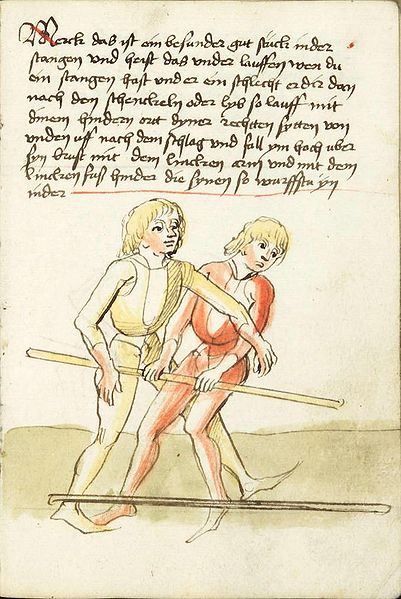 Merck das ist ein besunder gut stuck in der
stangen Vnd heist das vnder lauffen wen du
ein stangen hast vnd er ein schlecht er dir dan
nach den schenckeln oder lyb so lauff mit
dinem hindern ortt dyner rechtten sytten von
vnden vff nach dem schlag vnd fall ym hoch vber
syn brust mit dem lincken arm vnd mit dem
lincken fuß hinder die synen so wurffstu yn
nider